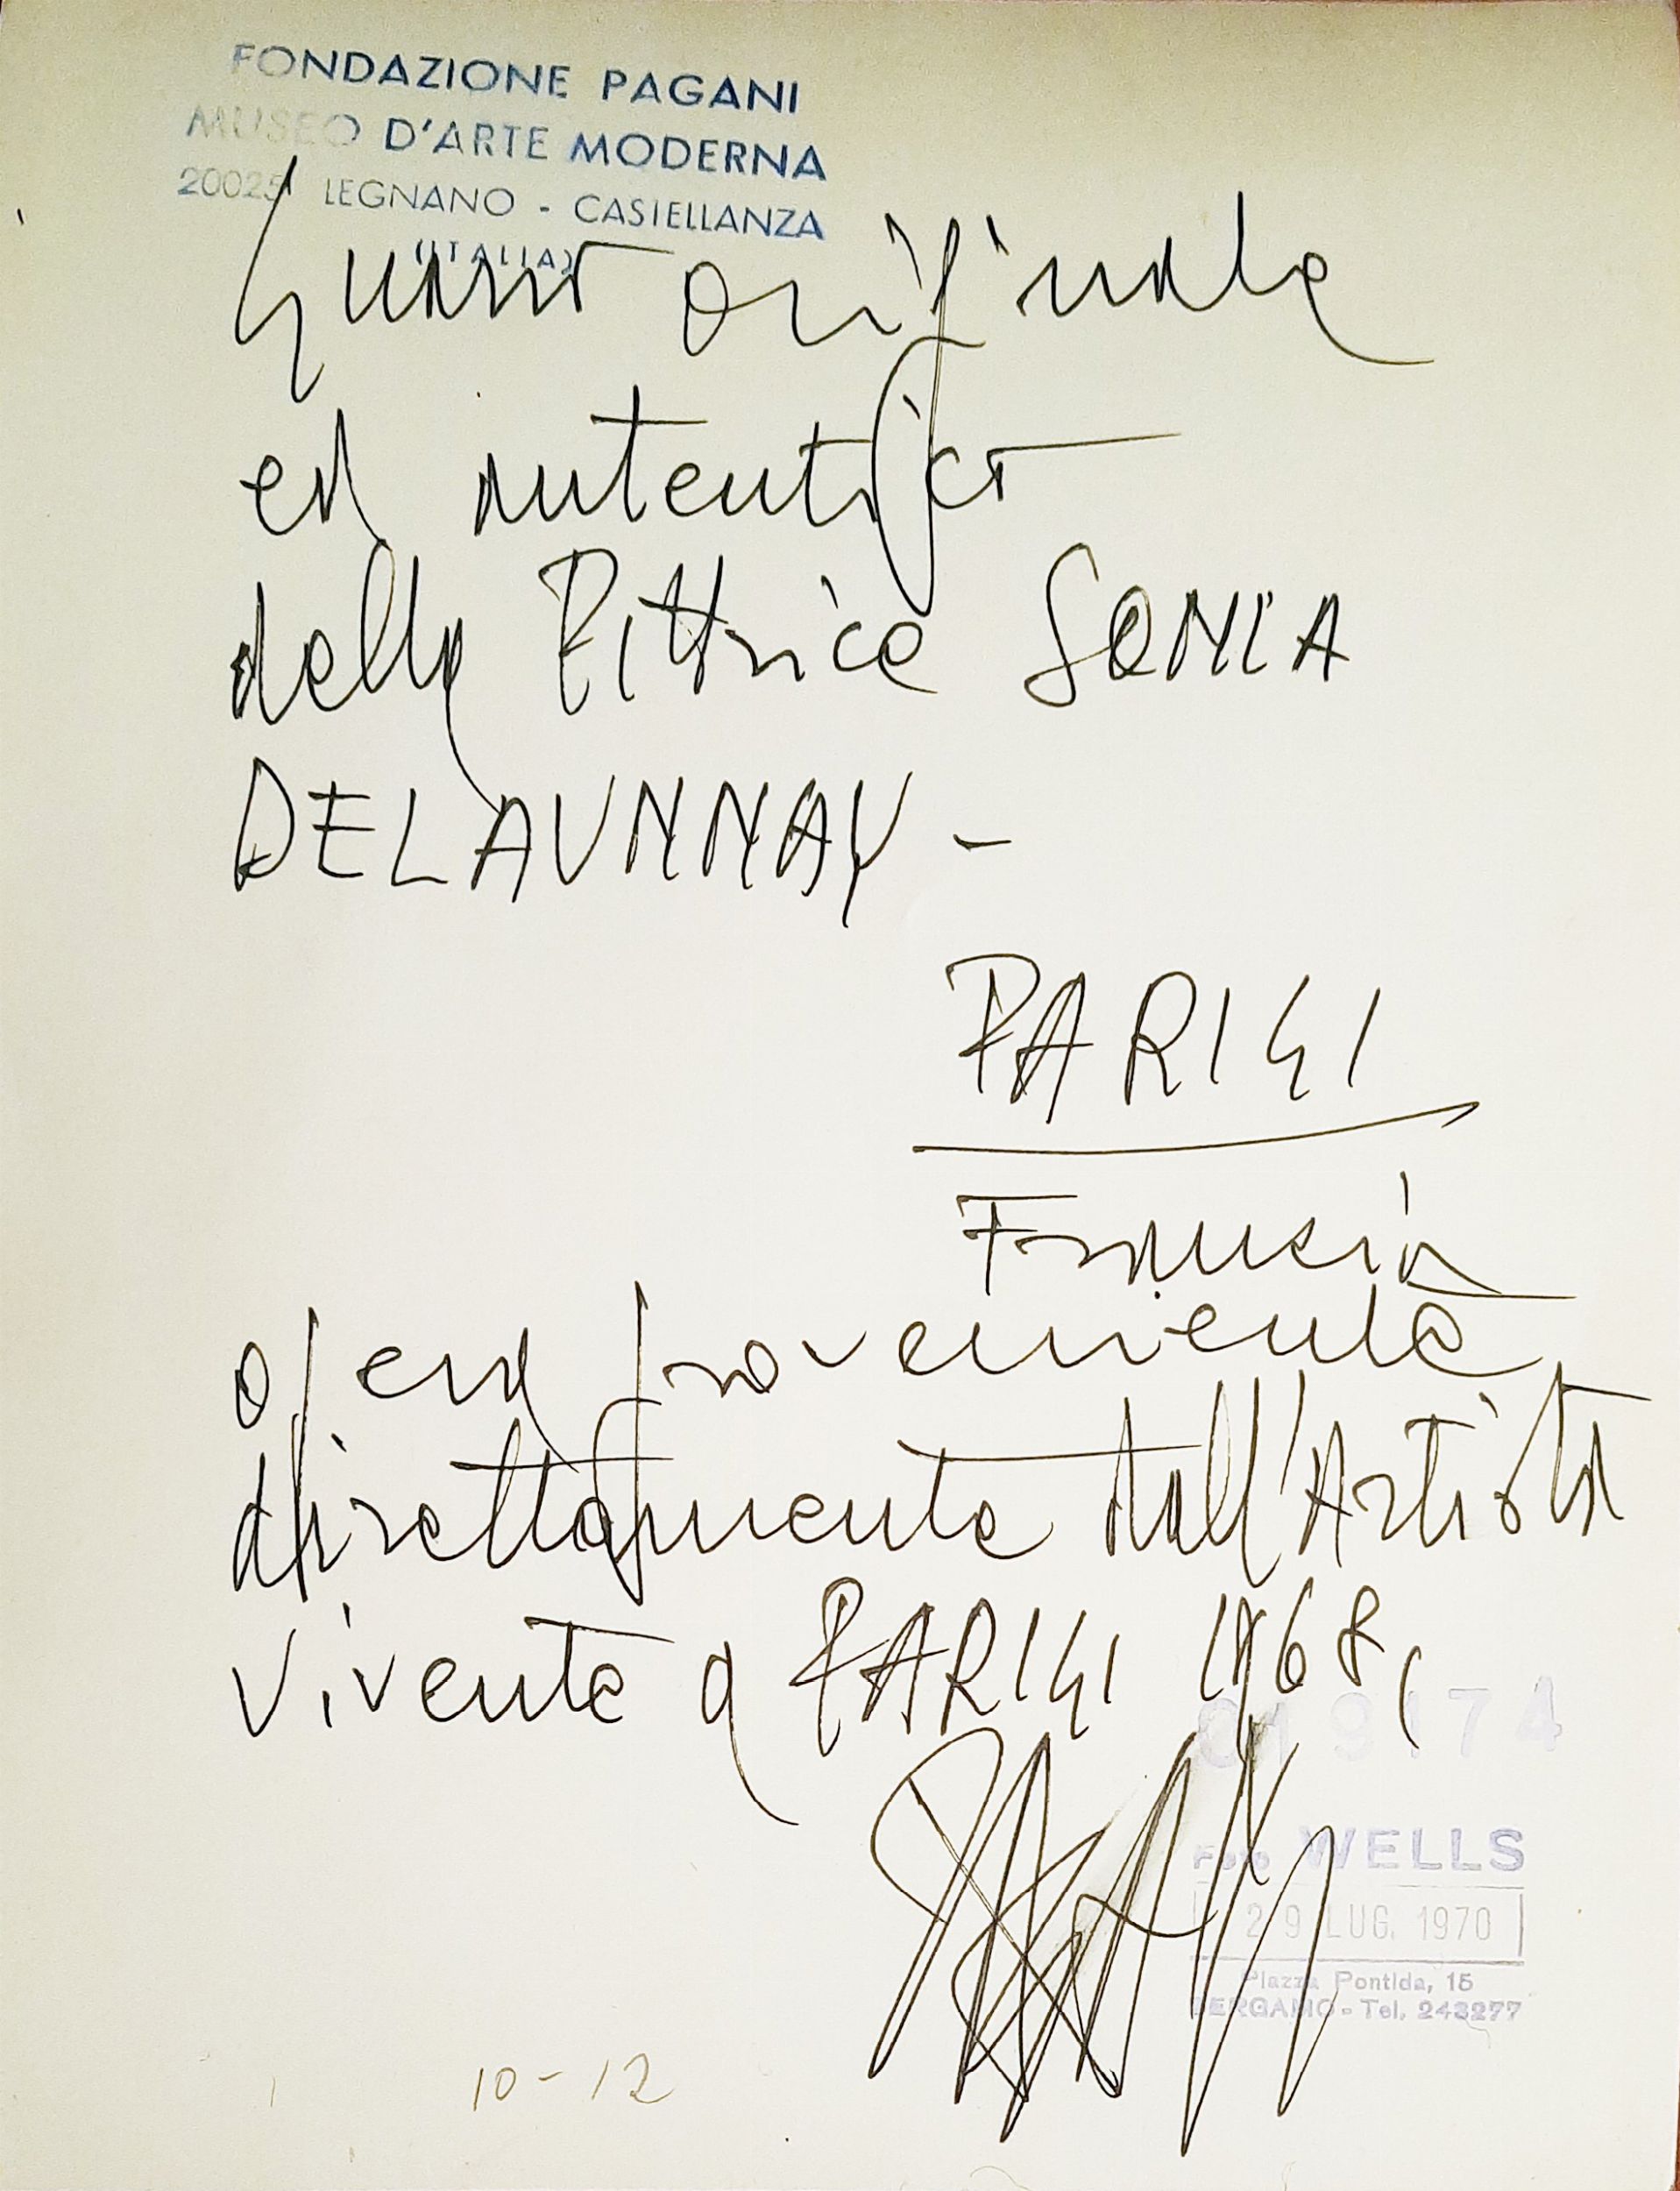 FONDAZIONE PAGANI
MUSEO D'ARTE MODERNA
20025 LEGNANO - CASTELLANZA
(ITALIA)
originale
ed autentico
della Pittrice SONIA
DELAUNNAY -
PARIGI
Francia
opera proveniente
direttamente dall'Artista
vivente a PARIGI 1968,
Foto WELLS
29 LUG. 1970
Piazza Pontida, 15
BERGAMO - Tel. 243277
10-12